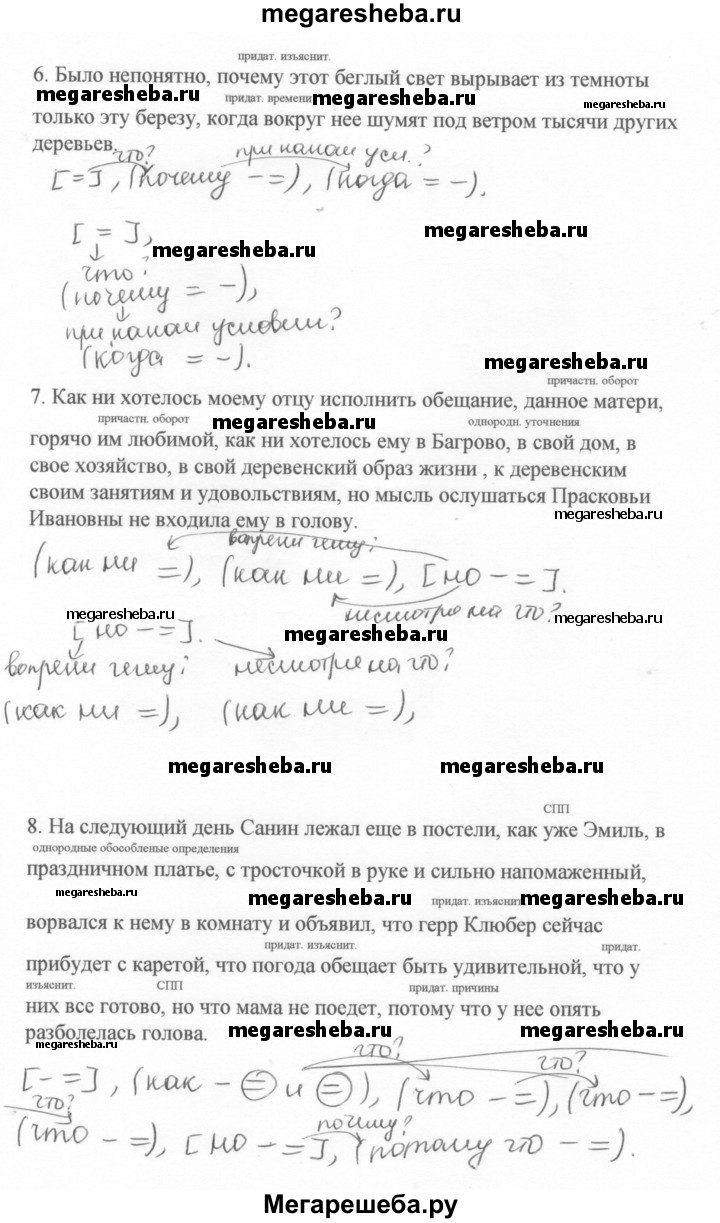 megaresheba.ru
придат. изъяснит.
6. Было непонятно, почему этот беглый свет вырывает из темноты
megaresheba.ru придат. времени megaresheba.ru
только эту березу, когда вокруг нее шумят под ветром тысячи других
деревьев.
что? при каком усл.?
[=], (почему -=), (когда = -).
[ = ],
megaresheba.ru
megaresheba.ru
что?
(почему = -),
при каком условии?
(когда = -).
megaresheba.ru
причастн. оборот
7. Как ни хотелось моему отцу исполнить обещание, данное матери,
причастн. оборот megaresheba.ru однородн. уточнения
горячо им любимой, как ни хотелось ему в Багрово, в свой дом, в
свое хозяйство, в свой деревенский образ жизни , к деревенским
своим занятиям и удовольствиям, но мысль ослушаться Прасковьи
Ивановны не входила ему в голову.
megaresheba.ru
вопреки чему?
(как ни =), (как ни =), [но -=].
несмотря на что?
megaresheba.ru
megaresheba.ru
megaresheba.ru
[но -=].
вопреки чему? несмотря на что?
(как ни =), (как ни =),
megaresheba.ru
megaresheba.ru
СПП
8. На следующий день Санин лежал еще в постели, как уже Эмиль, в
однородные обособленые определения
праздничном платье, с тросточкой в руке и сильно напомаженный,
megaresheba.ru megaresheba.ru придат. изъяснит. megaresheba.ru
ворвался к нему в комнату и объявил, что герр Клюбер сейчас
придат. изъяснит. придат.
прибудет с каретой, что погода обещает быть удивительной, что у
изъяснит. СПП придат. причины
них все готово, но что мама не поедет, потому что у нее опять
разболелась голова.
megaresheba.ru megaresheba.ru megaresheba.ru
что? что?
[-=], (как - = и =), (что -=), (что -=),
что? почему?
(что -=), [но -=], (потому что -=).
Мегарешеба.ру